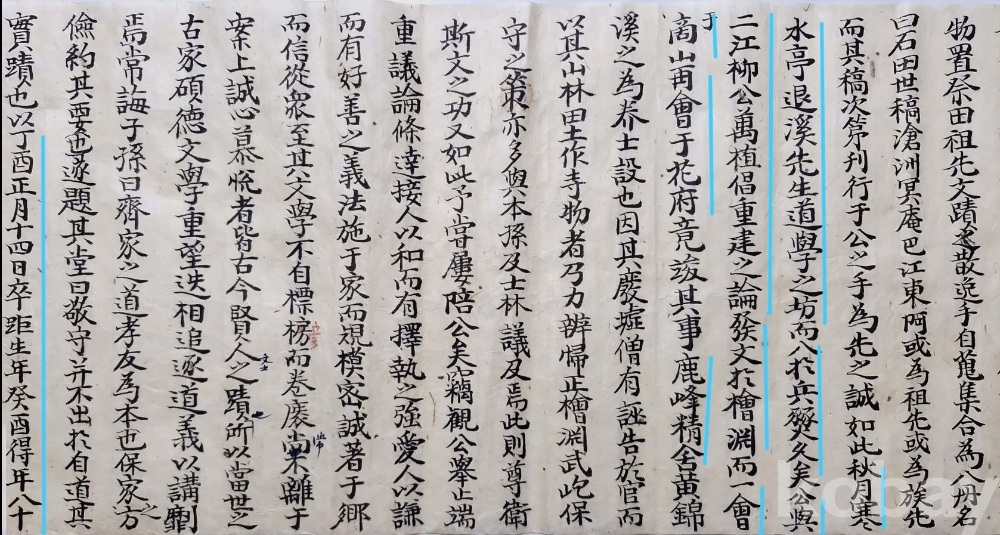 物置祭田祖先文蹟遺散逸手自蒐集合為八冊名
曰石田世稿滄洲冥庵巴江東阿或為祖先或為族先
而其稿次第刊行于公之手為先之誠如此秋月寒
水亭退溪先生道學之坊而入於兵燹久矣公與
二江柳公萬植倡重建之論發文於檜淵而一會
于高山再會于花府竟竣其事鹿峰精舍黃錦
溪之為養士設也因其廢墟僧有誣告於官而
以其山林田土作寺物者乃力辦歸正檜淵武屹保
守之策亦多與本孫及士林議及焉此則尊衛
斯文之功又如此予嘗屢陪公矣竊觀公舉止端
重議論條達接人以和而有擇執之強愛人以謙
而有好善之義法施于家而規模密誠著于鄉
而信從眾至其文學不自標榜而卷廢常不離于
案上誠心慕悅者皆古今賢人之蹟所以當世之
古家碩德文學重望迭相追逐道義以講劘
焉常誨子孫曰齊家之道孝友為本也保家之方
儉約其要也遂題其堂曰敬守并不出於自道其
實蹟也以丁酉正月十四日卒距生年癸酉得年八十
kobay